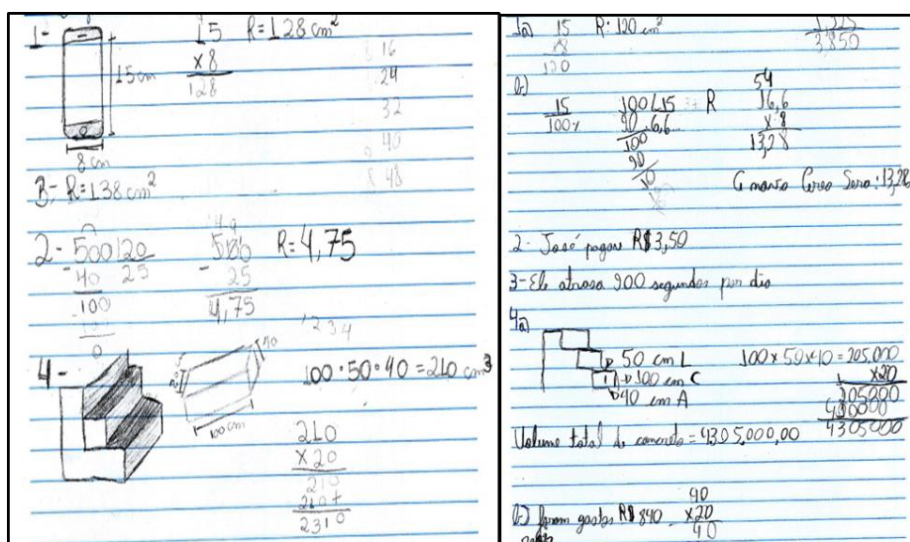 1-
15 R=128cm²
x8
128
15cm
8cm
16
24
32
40
48
B- R=138cm²
2- 500 20
40 25
-100
0
500
- 25
4,75
R=4,75
1234
4-
100cm
100·50·40=210cm³
210
x20
210
2310
1a) 15 R: 120 cm²
x8
120
3,850
b)
15
100%
100 15
90 6,6
100
90
10
R
54
16,6
x 8
13,28
2- José pagou R$3,50
3- Ele atrasa 900 segundos por dia
4a)
50 cm L
100 cm C
40 cm A
100x50x40=205.000
x20
205000
4305000
Volume total de concreto=4305,000,00
b) foram gastos R$840
40
x20
40